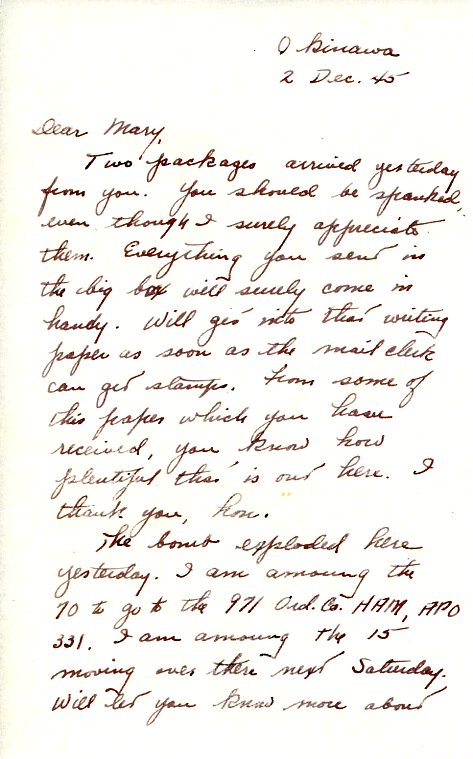 Okinawa
2 Dec. 45
Dear Mary,
Two packages arrived yesterday
from you. You should be spanked,
even though I surely appreciate
them. Everything you send in
the big box will surely come in
handy. Will get into that writing
paper as soon as the mail clerk
can get stamps. From some of
this paper which you have
received, you know how
plentiful that is out here. I
thank you, hon.
The bomb exploded here
yesterday. I am amoung the
70 to go to the 971 Ord. Co. HAM, APO
331. I am amoung the 15
moving over there next Saturday.
Will let you know more about